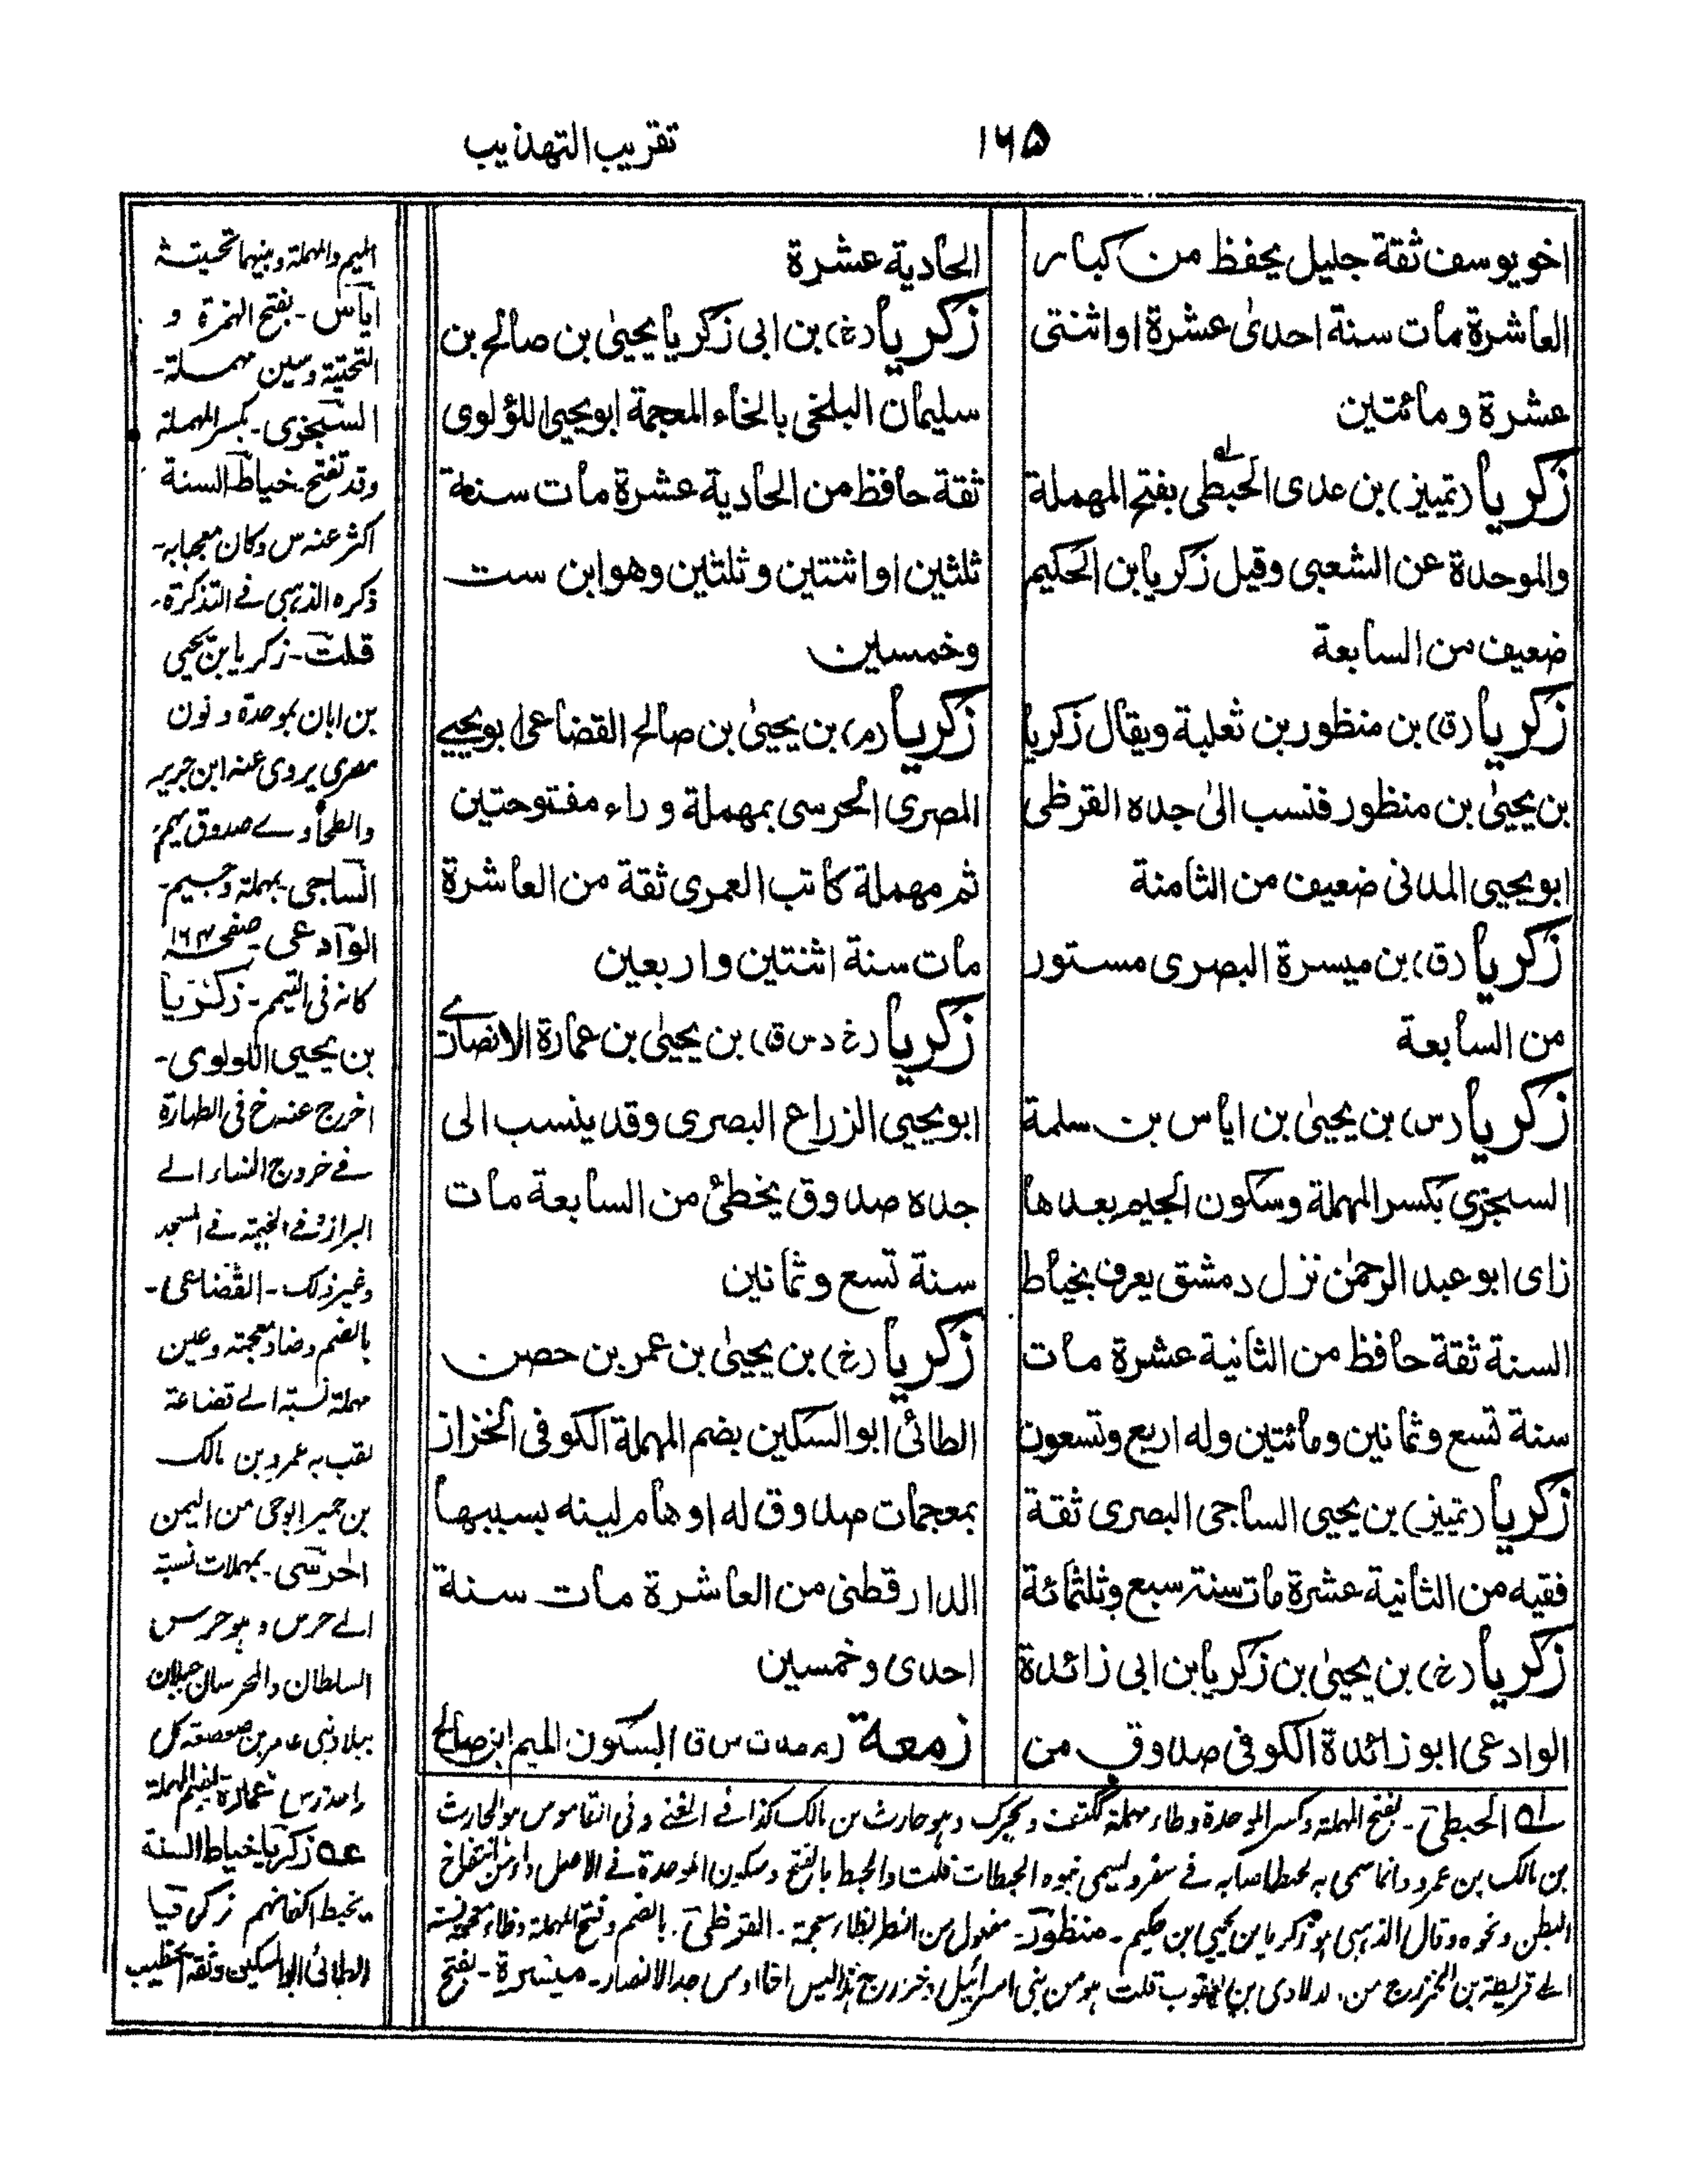 ١٦٥
تقريب التهذيب
اخو يوسف ثقة جليل يحفظ من كبار
العاشرة مات سنة احدىٰ عشرة او اثنتى
عشرة ومائتين
زكريا (تمييز) بن عدى الحبطى بفتح المهملة
والموحدة عن الشعبى وقيل زكريا ابن الحكيم
ضعيف من السابعة
زكريا (ق) بن منظور بن ثعلبة ويقال زكريا
بن يحيىٰ بن منظور فنسب الىٰ جده القرظى
ابو يحيى المدنى ضعيف من الثامنة
زكريا (ق) بن ميسرة البصرى مستور
من السابعة
زكريا (س) بن يحيىٰ بن اياس بن سلمة
السجزى بكسر المهملة وسكون الجيم بعدها
زاى ابو عبد الرحمٰن نزل دمشق يعرف بخياط
السنة ثقة حافظ من الثانية عشرة مات
سنة تسع وثمانين ومائتين وله اربع وتسعون
زكريا (تمييز) بن يحيى الساجى البصرى ثقة
فقيه من الثانية عشرة مات سنة سبع وثلثمائة
زكريا (خ) بن يحيىٰ بن زكريا بن ابى زائدة
الوادعى ابو زائدة الكوفى صدوق من
الحادية عشرة
زكريا (خ) بن ابى زكريا يحيىٰ بن صالح بن
سليمان البلخى بالخاء المعجمة ابو يحيىٰ اللؤلوى
ثقة حافظ من الحادية عشرة مات سنة
ثلثين او اثنتين وثلثين وهو ابن ست
وخمسين
زكريا (م) بن يحيىٰ بن صالح القضاعى ابو يحيے
المصرى الحرسى بمهملة وراء مفتوحتين
ثم مهملة كاتب العمرى ثقة من العاشرة
مات سنة اثنتين واربعين
زكريا (خ د س ق) بن يحيىٰ بن عمارة الانصارے
ابو يحيى الزراع البصرى وقد ينسب الى
جده صدوق يخطئ من السابعة مات
سنة تسع وثمانين
زكريا (خ) بن يحيىٰ بن عمر بن حصن
الطائى ابو السكين بضم المهملة الكوفى الخزاز
بمعجمات صدوق له اوهام لينه بسببها
الدارقطنى من العاشرة مات سنة
احدى وخمسين
زمعة (م مد ت س ق) بسكون الميم ابن صالح
الميم والمهملة وبينهما تحتيتة
اياس - بفتح الهمزة و
التحتية وسين مهملة -
السجزى - بكسر المهملة
وقد تفتح - خياط السنة
اكثر عنه س وكان معجبا به -
ذكره الذهبى فے التذكرة -
قلت - زكريا بن يحيى
بن ابان بموحدة ونون
مصرى يروى عنه ابن جرير
والطحاوے صدوق يهم
الساجى - بمهملة وجيم -
الوادعى - صفحہ ١٦٤
كانه فى التيمم - زكريا
بن يحيى اللولوى -
اخرج عنه خ فى الطهارة
فے خروج النساء الے
البراز وفے الخيمة فے المسجد
وغير ذلك - القضاعى -
بالضم وضاد معجمة وعين
مهملة نسبة الے قضاعة
لقب به عمرو بن مالك
بن حمير ابو حى من اليمن
الحرسى - بمهملات نسبة
الے حرس وهو حرس
السلطان والحرسان جبلان
ببلاد بنى عامر بن صعصعة كل
واحد حرس عمارة بضم المهملة
عه زكريا خياط السنة
يخيط اكفانهم زكريا
الطائى ابو السكين وثقه الخطيب
لے الحبطى - بفتح المهملة وكسر الموحدة وطاء مهملة ككتف ويحرك وهو حارث بن مالك كذا فے المغنے وفى القاموس هو الحارث
بن مالك بن عمرو وانما سمى به لحبط اصابه فے سفر ويسمى بنوه الحبطات قلت والحبط بالفتح وسكون الموحدة فے الاصل داء من انتفاخ
البطن ونحوه وقال الذهبى هو زكريا بن يحيى بن حكيم - منظور - مفعول من النظر بظاء معجمة - القرظى - بالضم وفتح المهملة وظاء معجمة نسبة
الے قريظة بن الخزرج من لاوى بن يعقوب قلت هو من بنى اسرائيل وخزرج هذا ليس اخا اوس جد الانصار - ميسرة - بفتح